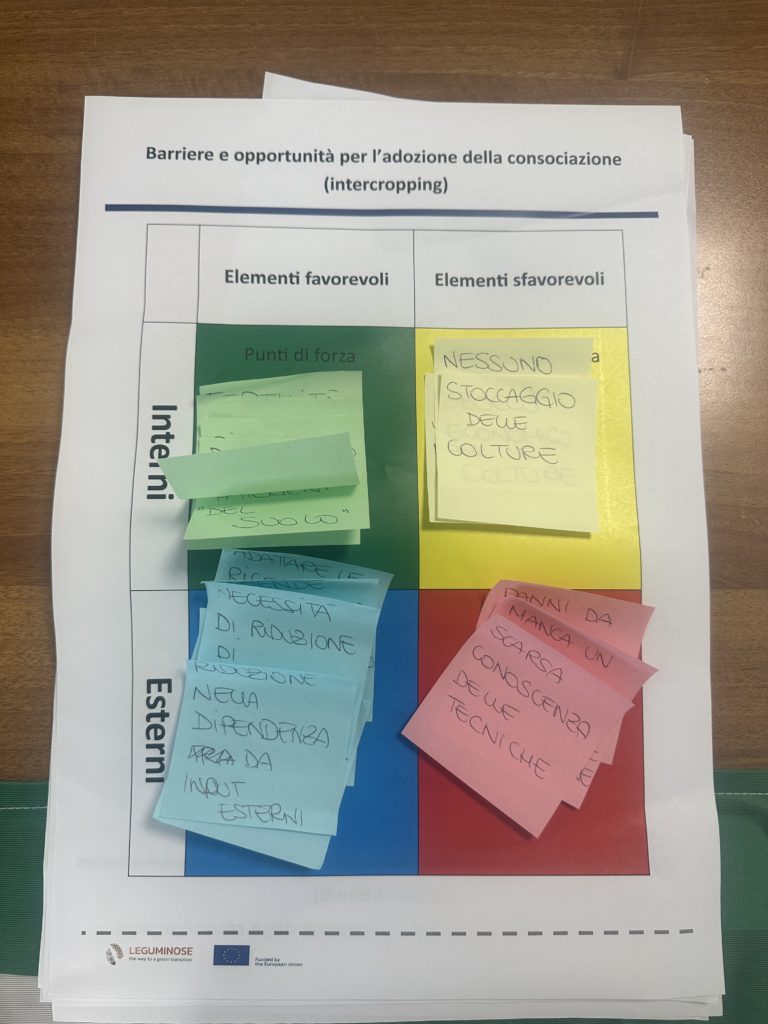 Barriere e opportunità per l'adozione della consociazione
(intercropping)
Elementi favorevoli
Elementi sfavorevoli
Interni
Punti di forza
"DEL
SUOLO"
a
NESSUNO
STOCCAGGIO
DELLE
COLTURE
Esterni
ADATTARE LE
NECESSITÀ
DI RIDUZIONE
DI
RIDUZIONE
NELLA
DIPENDENZA
DA
INPUT
ESTERNI
DANNI DA
MANCA UN
SCARSA
CONOSCENZA
DELLE
TECNICHE
LEGUMINOSE
the way to a green transition
Funded by
the European Union